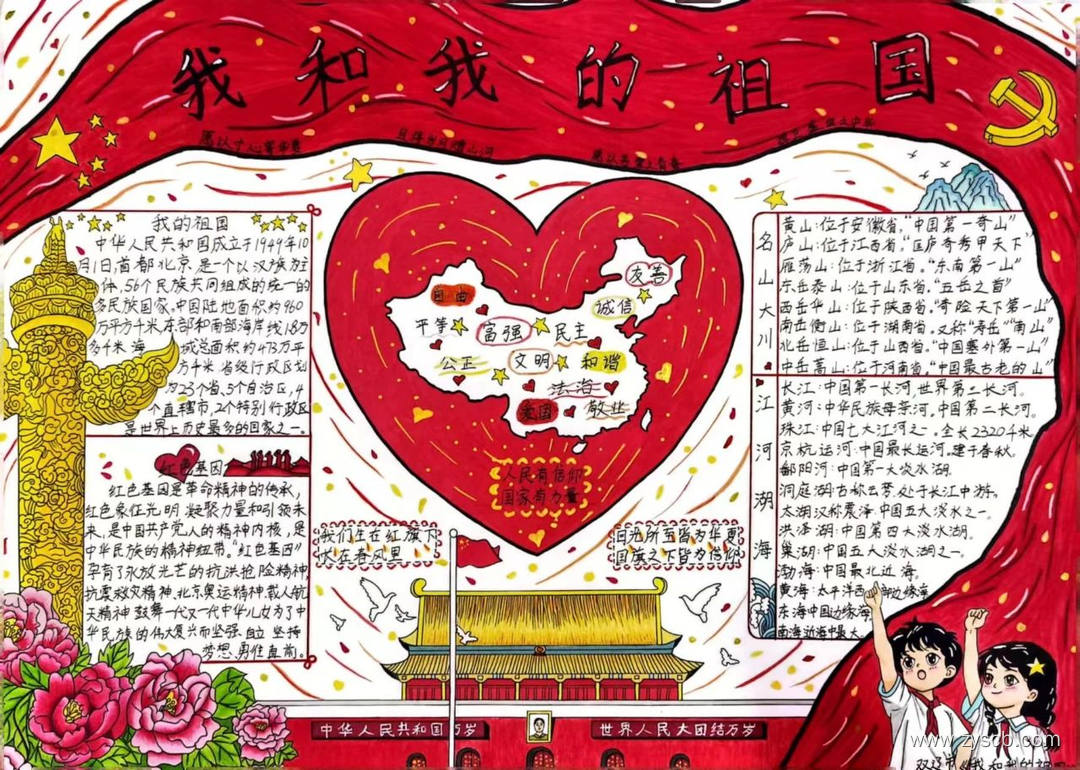 我和我的祖国
愿以寸心寄华夏
且将岁月赠山河
我的祖国
中华人民共和国成立于1949年10
月1日,首都北京,是一个以汉族为主
体,56个民族共同组成的统一的
多民族国家,中国陆地面积约960
万平方千米,东部和南部海岸线1.8万
多千米,海域总面积约473万平
方千米.省级行政区划
为23个省,5个自治区,4
个直辖市,2个特别行政区
是世界上历史最多的国家之一。
红色基因
红色基因是革命精神的传承,
红色象征光明,凝聚力量和引领未
来,是中国共产党人的精神内核,是
中华民族的精神纽带。"红色基因"
孕育了永放光芒的抗洪抢险精神,
抗震救灾精神,北京奥运精神,载人航
天精神,鼓舞一代又一代中华儿女为了中
华民族的伟大复兴而坚强自立 坚持
梦想、勇往直前。
友善
自由
诚信
平等
富强
民主
公正
文明
和谐
法治
爱国
敬业
人民有信仰
国家有力量
我们生在红旗下
长在春风里
目光所至皆为华夏
国旗之下皆为信仰
名山大川
黄山:位于安徽省,"中国第一奇山"
庐山:位于江西省,"匡庐奇秀甲天下"
雁荡山:位于浙江省。"东南第一山"
东岳泰山:位于山东省。"五岳之首"
西岳华山:位于陕西省。"奇险天下第一山"
南岳衡山:位于湖南省。又称"寿岳""南山"
北岳恒山:位于山西省。"中国塞外第一山"
中岳嵩山:位于河南省。"中国最古老的山"
江河湖海
长江:中国第一长河,世界第三长河。
黄河:中华民族母亲河。中国第二长河。
珠江:中国七大江河之一。全长2320千米
京杭运河:中国最长运河。建于春秋。
鄱阳河:中国第一大淡水湖
洞庭湖:古称云梦,处于长江中游。
太湖:汉称震泽,中国五大淡水之一。
洪泽湖:中国第四大淡水湖。
巢湖:中国五大淡水湖之一。
渤海:中国最北近海。
黄海:太平洋西部边缘海
东海:中国边缘海
南海:近海中最大。
中华人民共和国万岁
世界人民大团结万岁
www.zyscb.com